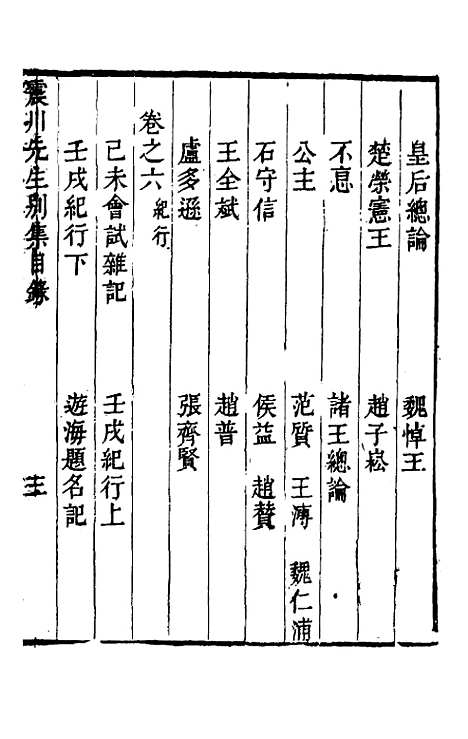 皇后總論 魏悼王
楚榮憲王 趙子崧
不息 諸王總論
公主 范質 王溥 魏仁浦
石守信 侯益 趙贊
王全斌 趙普
盧多遜 張齊賢
卷之六 紀行
己未會試雜記 壬戌紀行上
壬戌紀行下 遊海題名記
震川先生別集目錄 十三